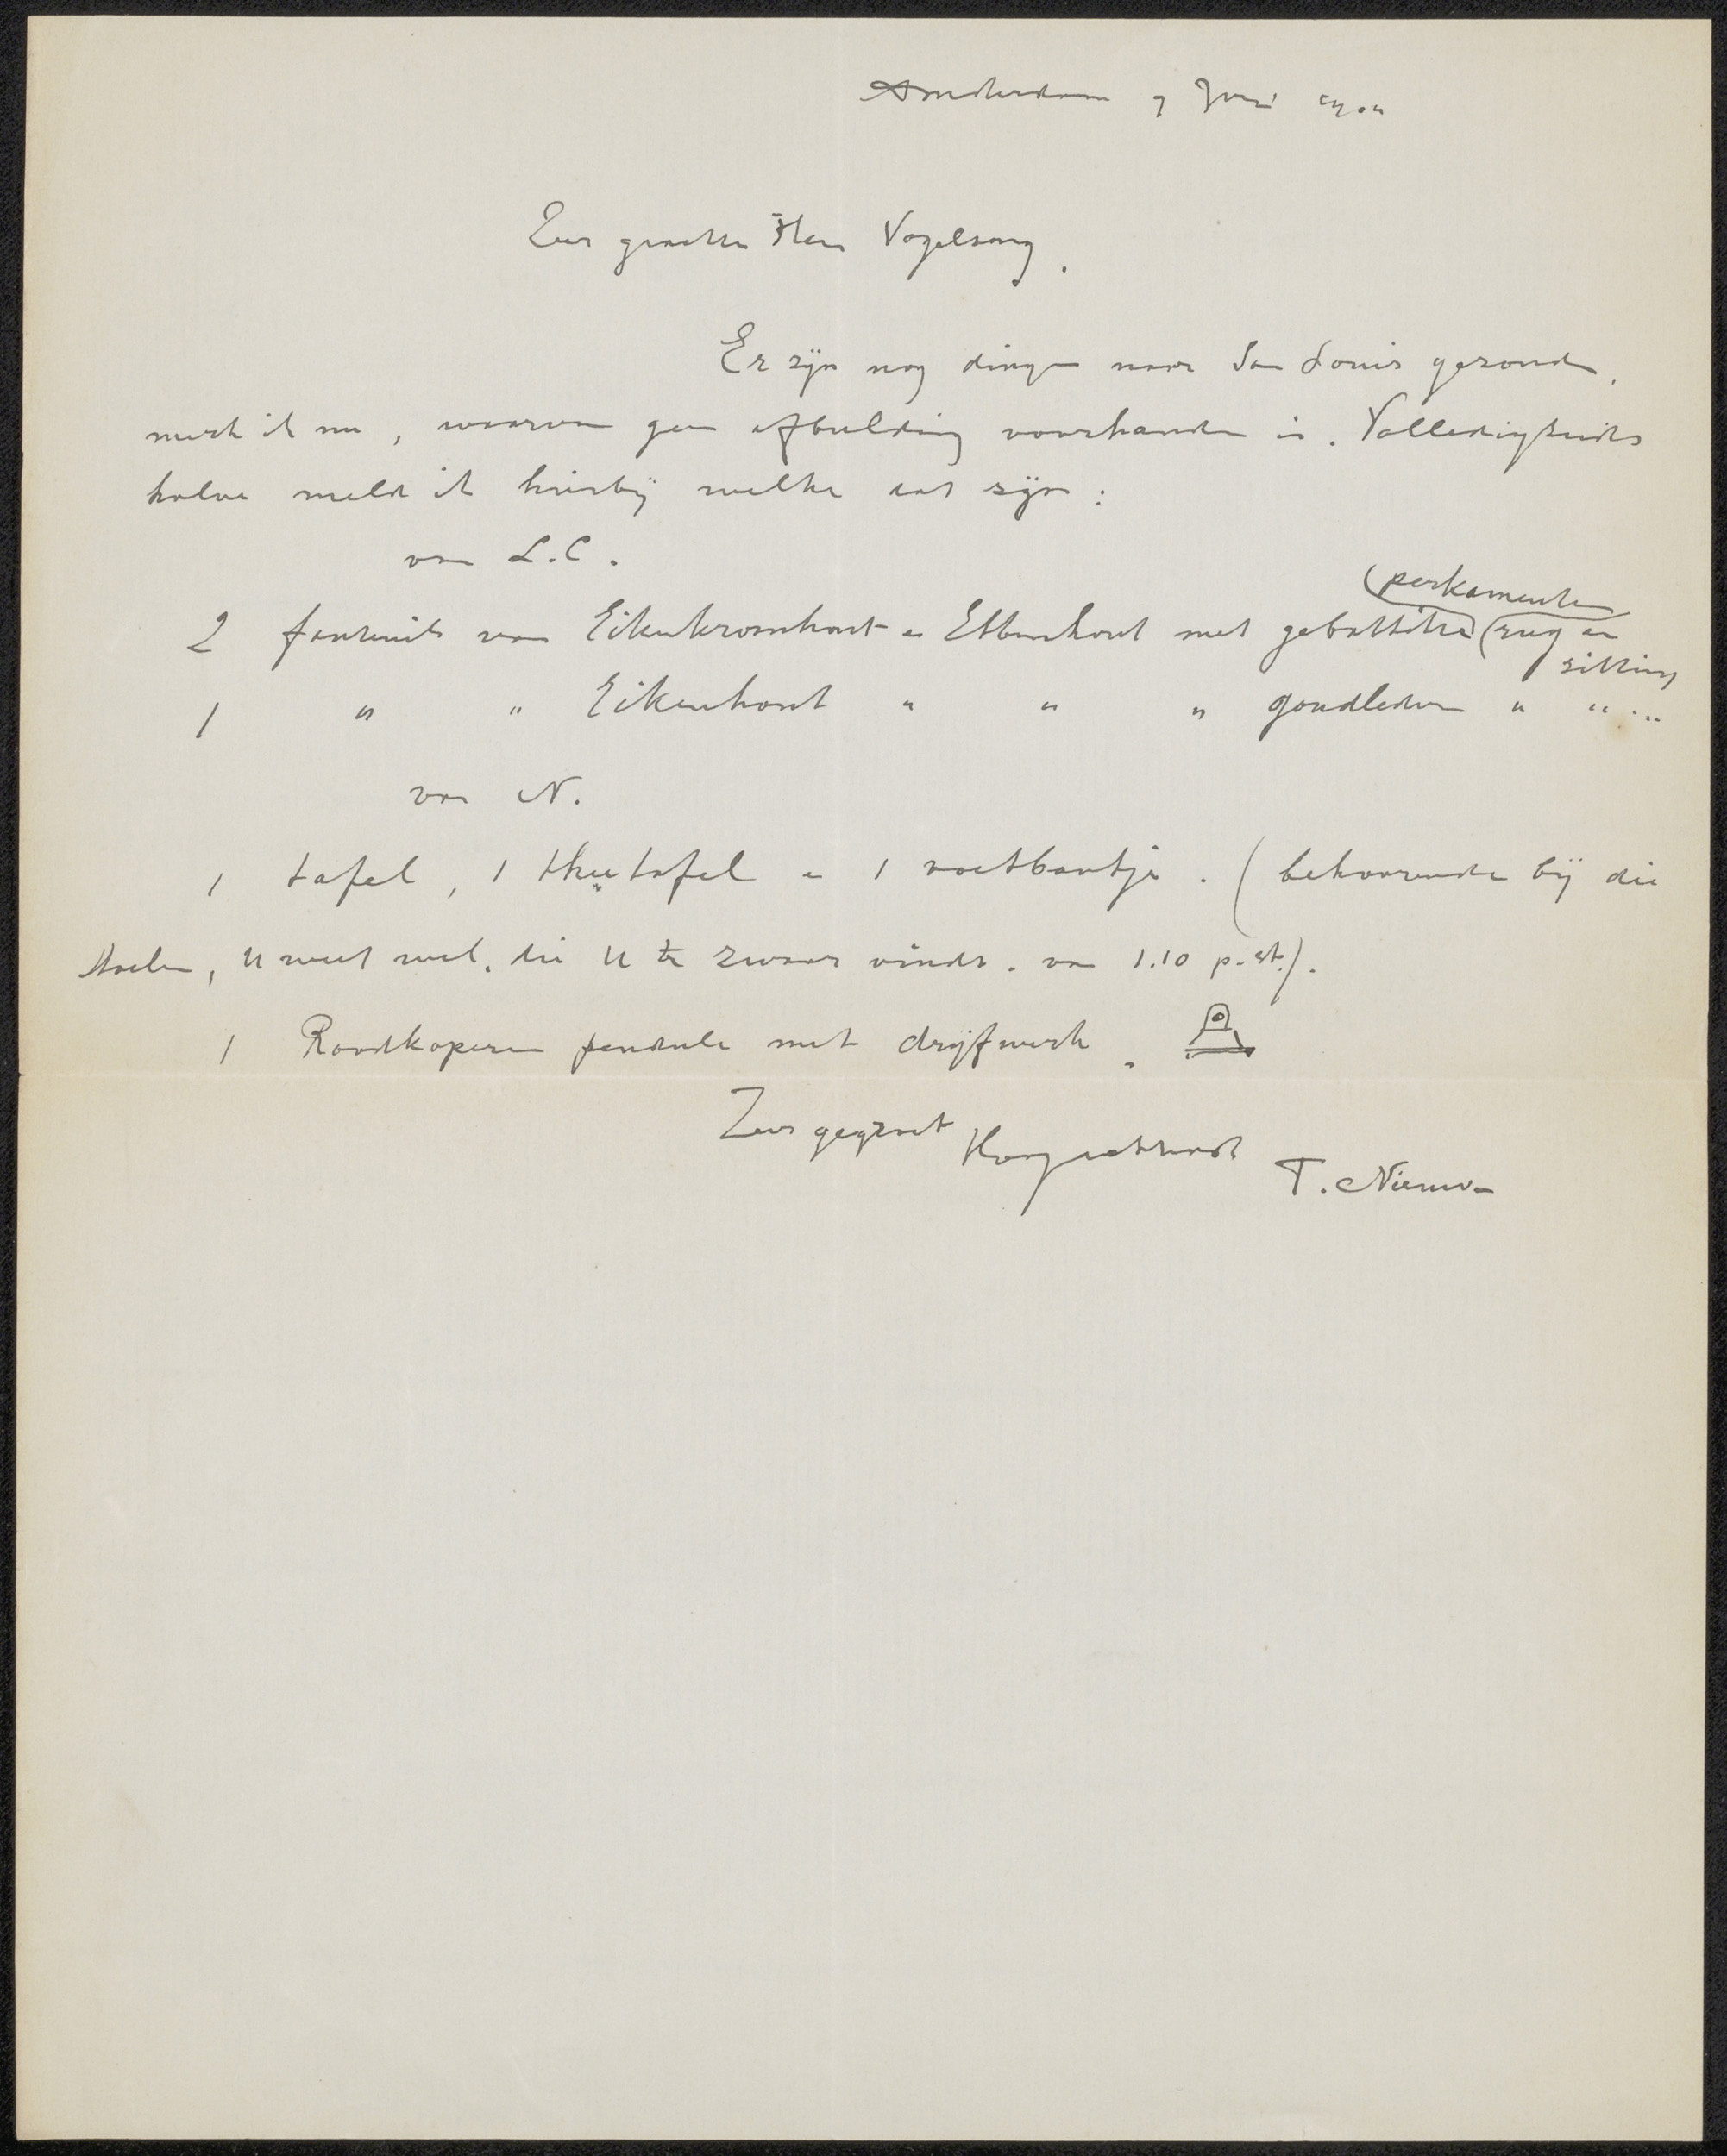 Amsterdam 7 Juni 1904
Zeer geachte Heer Vogelsang.
Er zijn nog dingen naar San Louis gezonden,
merk ik nu, waarvan geen afbeelding voorhanden is. Volledigheids
halve meld ik hierbij welke dat zijn:
van L.C.
(perkamenten
2 fauteuils van Eikenkroonhout en Ebbenhout met gebattikte (rug en
zitting
1 " " Eikenhout " " " goudlederen " " "
van N.
1 tafel, 1 theetafel en 1 voetbankje. (behoorende bij die
stoelen, U weet wel, die U te zwaar vindt. van 1.10 p. st.).
1 Roodkoperen pendule met drijfwerk.
Zeer gegroet Hoogachtend
T. Nieuw-